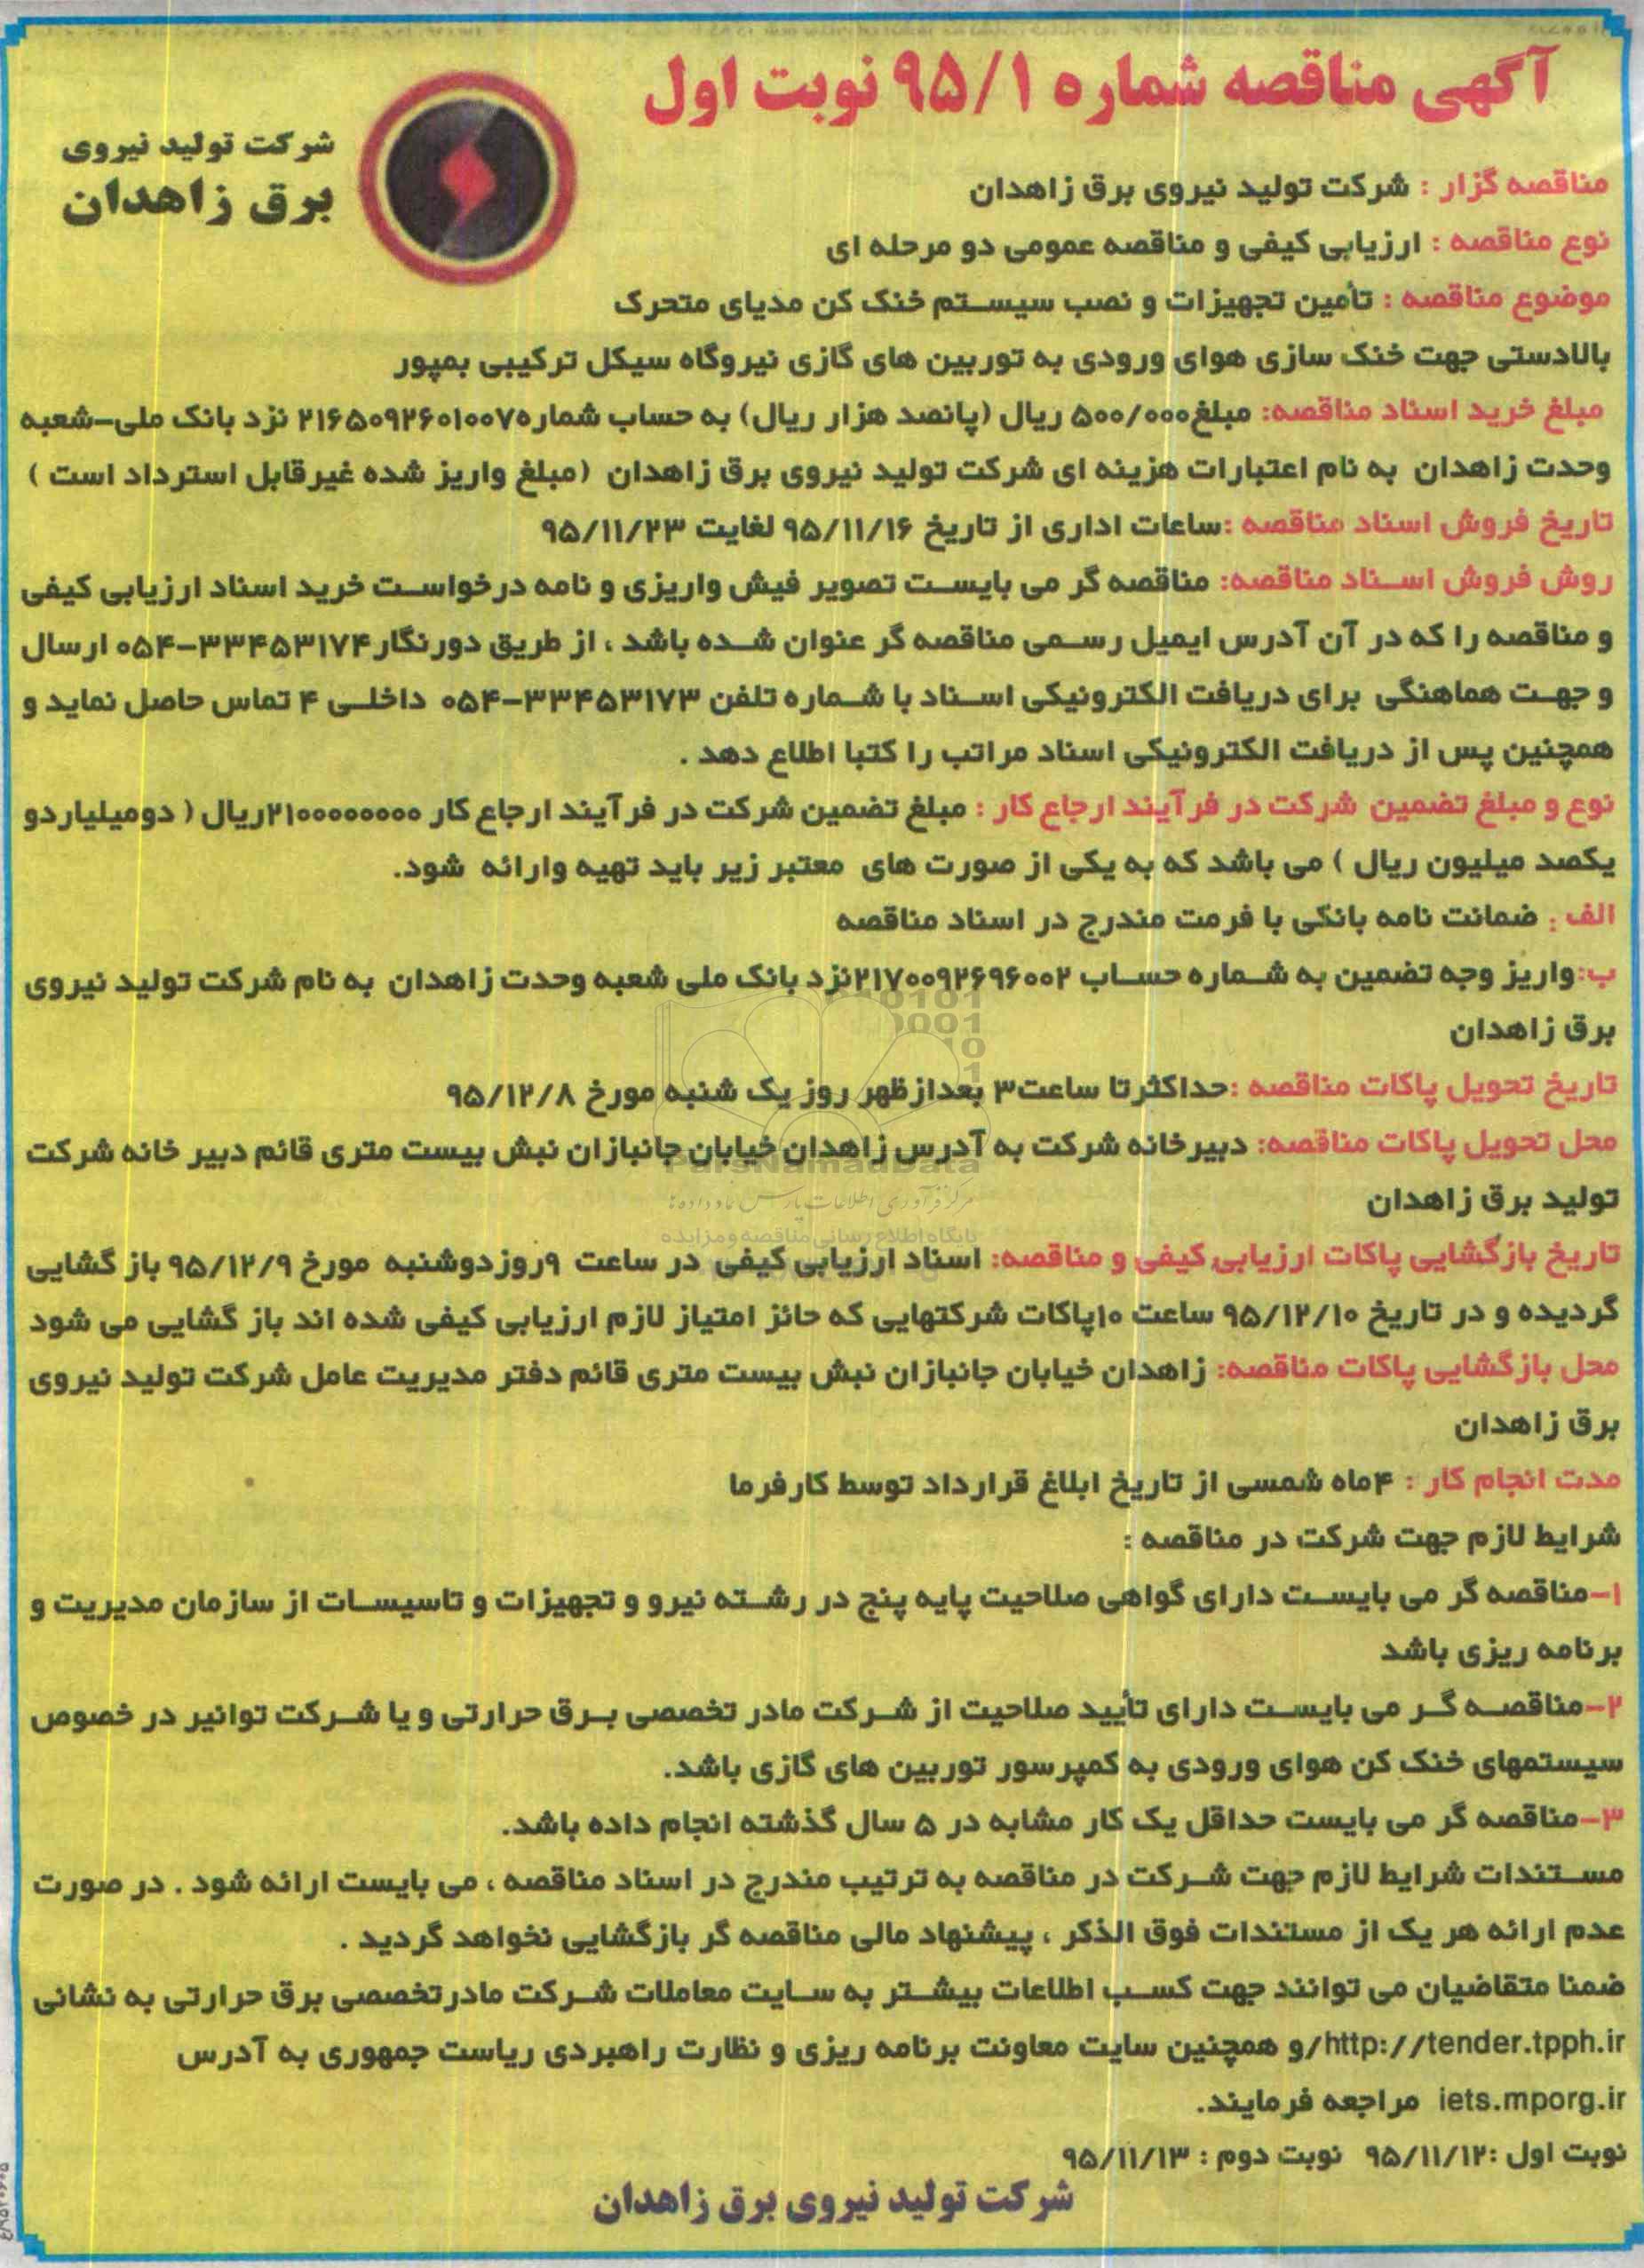 آگهی مناقصه شماره ۹۵/۱ نوبت اول
شرکت تولید نیروی
برق زاهدان
مناقصه گزار : شرکت تولید نیروی برق زاهدان
نوع مناقصه : ارزیابی کیفی و مناقصه عمومی دو مرحله ای
موضوع مناقصه : تأمین تجهیزات و نصب سیستم خنک کن مدیای متحرک
بالادستی جهت خنک سازی هوای ورودی به توربین های گازی نیروگاه سیکل ترکیبی بمپور
مبلغ خرید اسناد مناقصه: مبلغ۵۰۰/۰۰۰ ریال (پانصد هزار ریال) به حساب شماره۲۱۶۵۰۹۲۶۰۱۰۰۷ نزد بانک ملی-شعبه
وحدت زاهدان به نام اعتبارات هزینه ای شرکت تولید نیروی برق زاهدان (مبلغ واریز شده غیرقابل استرداد است )
تاریخ فروش اسناد مناقصه :ساعات اداری از تاریخ ۹۵/۱۱/۱۶ لغایت ۹۵/۱۱/۲۳
روش فروش اسناد مناقصه: مناقصه گر می بایست تصویر فیش واریزی و نامه درخواست خرید اسناد ارزیابی کیفی
و مناقصه را که در آن آدرس ایمیل رسمی مناقصه گر عنوان شده باشد ، از طریق دورنگار۳۳۴۵۳۱۷۴-۰۵۴ ارسال
و جهت هماهنگی برای دریافت الکترونیکی اسناد با شماره تلفن ۳۳۴۵۳۱۷۳-۰۵۴ داخلی ۴ تماس حاصل نماید و
همچنین پس از دریافت الکترونیکی اسناد مراتب را کتبا اطلاع دهد .
نوع و مبلغ تضمین شرکت در فرآیند ارجاع کار : مبلغ تضمین شرکت در فرآیند ارجاع کار ۲۱۰۰۰۰۰۰۰۰ریال ( دومیلیاردو
یکصد میلیون ریال ) می باشد که به یکی از صورت های معتبر زیر باید تهیه وارائه شود.
الف : ضمانت نامه بانکی با فرمت مندرج در اسناد مناقصه
ب:واریز وجه تضمین به شماره حساب ۲۱۷۰۰۹۲۶۹۶۰۰۲نزد بانک ملی شعبه وحدت زاهدان به نام شرکت تولید نیروی
برق زاهدان
تاریخ تحویل پاکات مناقصه :حداکثرتا ساعت۳ بعدازظهر روز یک شنبه مورخ ۹۵/۱۲/۸
محل تحویل پاکات مناقصه: دبیرخانه شرکت به آدرس زاهدان خیابان جانبازان نبش بیست متری قائم دبیر خانه شرکت
ParsNamadData
تولید برق زاهدان
مرکز فرآوری اطلاعات پارس نماد داده ها
پایگاه اطلاع رسانی مناقصه و مزایده
تاریخ بازگشایی پاکات ارزیابی کیفی و مناقصه: اسناد ارزیابی کیفی در ساعت ۹روزدوشنبه مورخ ۹۵/۱۲/۹ باز گشایی
گردیده و در تاریخ ۹۵/۱۲/۱۰ ساعت ۱۰پاکات شرکتهایی که حائز امتیاز لازم ارزیابی کیفی شده اند باز گشایی می شود
محل بازگشایی پاکات مناقصه: زاهدان خیابان جانبازان نبش بیست متری قائم دفتر مدیریت عامل شرکت تولید نیروی
برق زاهدان
مدت انجام کار : ۴ماه شمسی از تاریخ ابلاغ قرارداد توسط کارفرما
شرایط لازم جهت شرکت در مناقصه :
۱-مناقصه گر می بایست دارای گواهی صلاحیت پایه پنج در رشته نیرو و تجهیزات و تاسیسات از سازمان مدیریت و
برنامه ریزی باشد
۲-مناقصه گر می بایست دارای تأیید صلاحیت از شرکت مادر تخصصی برق حرارتی و یا شرکت توانیر در خصوص
سیستمهای خنک کن هوای ورودی به کمپرسور توربین های گازی باشد.
۳-مناقصه گر می بایست حداقل یک کار مشابه در ۵ سال گذشته انجام داده باشد.
مستندات شرایط لازم جهت شرکت در مناقصه به ترتیب مندرج در اسناد مناقصه ، می بایست ارائه شود . در صورت
عدم ارائه هر یک از مستندات فوق الذکر ، پیشنهاد مالی مناقصه گر بازگشایی نخواهد گردید .
ضمنا متقاضیان می توانند جهت کسب اطلاعات بیشتر به سایت معاملات شرکت مادرتخصصی برق حرارتی به نشانی
http://tender.tpph.ir/و همچنین سایت معاونت برنامه ریزی و نظارت راهبردی ریاست جمهوری به آدرس
iets.mporg.ir مراجعه فرمایند.
نوبت اول :۹۵/۱۱/۱۲ نوبت دوم : ۹۵/۱۱/۱۳
شرکت تولید نیروی برق زاهدان